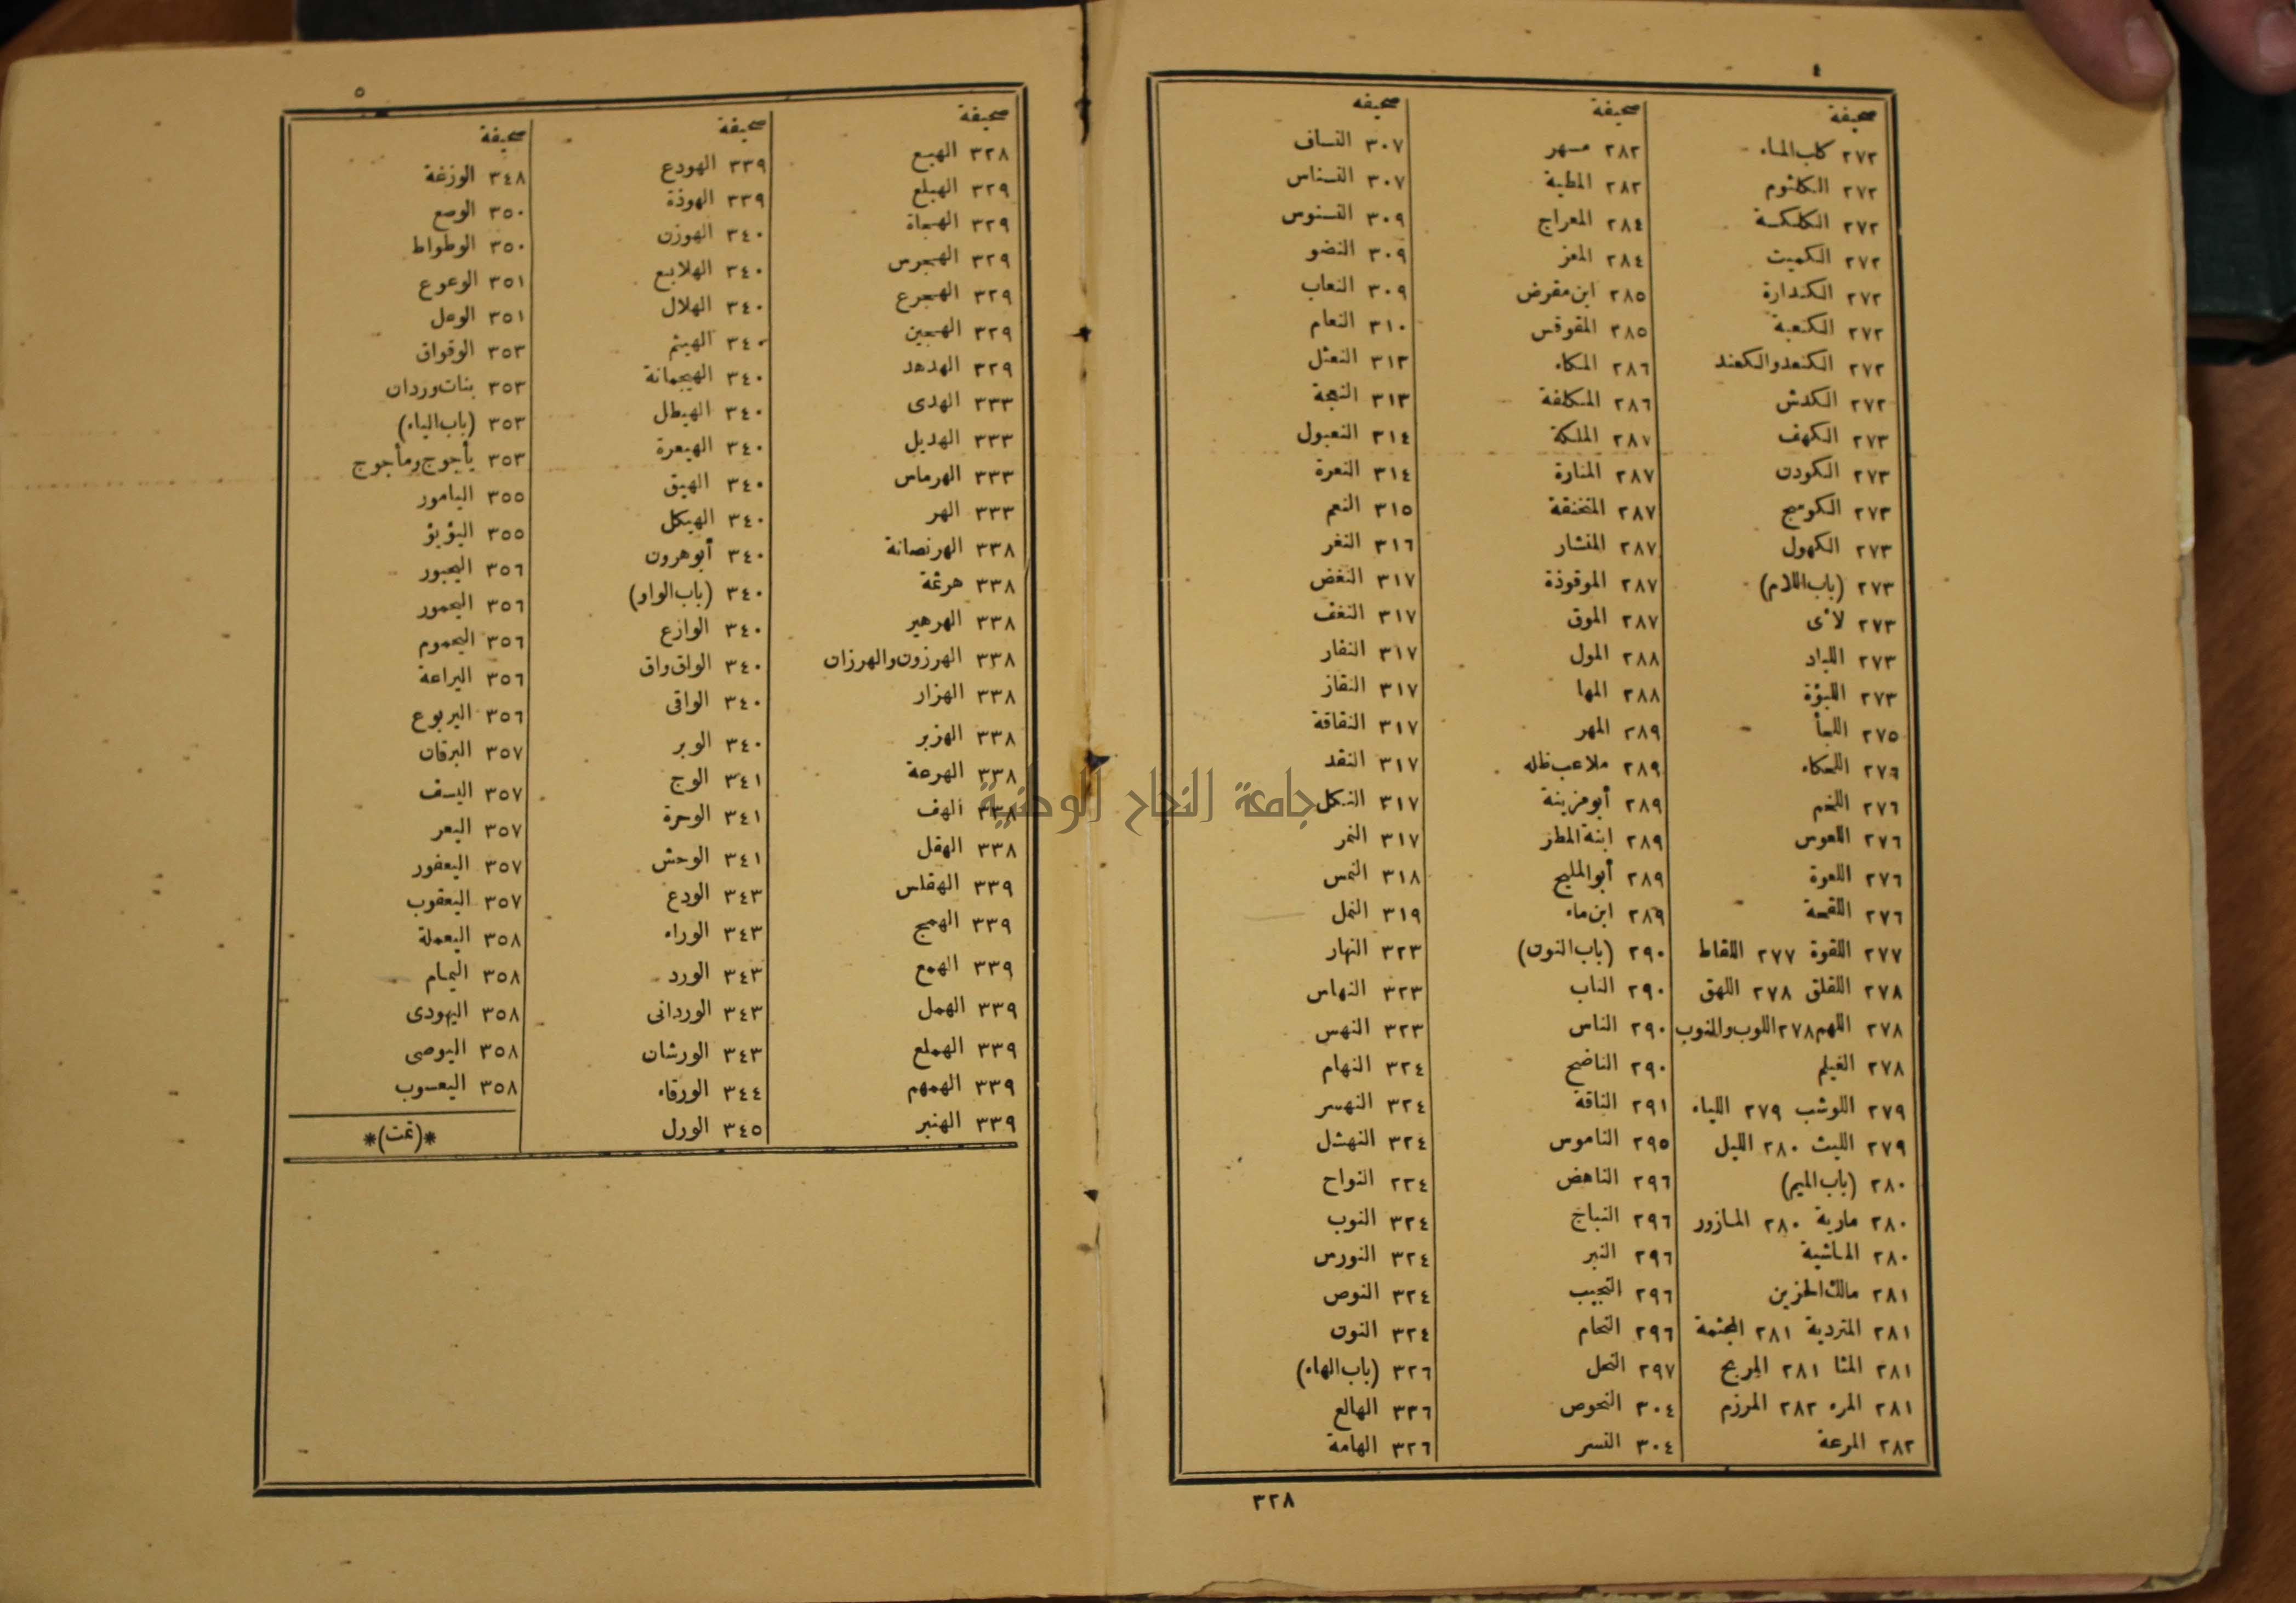 ٤
صحيفة
٢٧٢ كلب الماء
٢٧٢ الكلثوم
٢٧٢ الكلكسة
٢٧٢ الكميت
٢٧٢ الكندارة
٢٧٢ الكنعبة
٢٧٢ الكنعد والكعند
٢٧٢ الكندش
٢٧٣ الكهف
٢٧٣ الكودن
٢٧٣ الكوسج
٢٧٣ الكهول
٢٧٣ (باب اللام)
٢٧٣ لأى
٢٧٣ اللباد
٢٧٣ اللبؤة
٢٧٥ اللجأ
٢٧٦ اللحكاء
٢٧٦ اللخم
٢٧٦ اللعوس
٢٧٦ اللعوة
٢٧٦ اللقحة
٢٧٧ اللقوة ٢٧٧ اللقاط
٢٧٨ اللقلق ٢٧٨ اللهق
٢٧٨ اللهم ٢٧٨ اللوب والنوب
٢٧٨
٢٧٩ اللوشب ٢٧٩ اللياء
٢٧٩ الليث ٢٨٠ الليل
٢٨٠ (باب الميم)
٢٨٠ مارية ٢٨٠ المازور
٢٨٠ الماشية
٢٨١ مالك الحزين
٢٨١ المتردية ٢٨١ المجثمة
٢٨١ المثا ٢٨١ المريج
٢٨١ المره ٢٨٢ المرزم
٢٨٢ المرعة
صحيفة
٢٨٢ مسهر
٢٨٢ المطية
٢٨٤ المعراج
٢٨٤ المعز
٢٨٥ ابن مقرض
٢٨٥ المقوقس
٢٨٦ المكاء
٢٨٦ المكلفة
٢٨٧ الملكة
٢٨٧ المنارة
٢٨٧ المنخنقة
٢٨٧ المنشار
٢٨٧ الموقوذة
٢٨٧ الموق
٢٨٨ المول
٢٨٨ المها
٢٨٩ المهر
٢٨٩ ملاعب ظله
٢٨٩ أبو مزينة
٢٨٩ ابنة المطر
٢٨٩ أبو المليح
٢٨٩ ابن ماء
٢٩٠ (باب النون)
٢٩٠ الناب
٢٩٠ الناس
٢٩٠ الناضح
٢٩١ الناقة
٢٩٥ الناموس
٢٩٦ الناهض
٢٩٦ النباج
٢٩٦ النبر
٢٩٦ النجيب
٢٩٦ النحام
٢٩٧ النحل
٣٠٤ النحوص
٣٠٤ النسر
صحيفة
٣٠٧ النساف
٣٠٧ النسناس
٣٠٩ النسنوس
٣٠٩ النضو
٣٠٩ النعاب
٣١٠ النعام
٣١٣ النعثل
٣١٣ النعجة
٣١٤ النعبول
٣١٤ النعرة
٣١٥ النعم
٣١٦ النغر
٣١٧ النغض
٣١٧ النغف
٣١٧ النقار
٣١٧ النقاز
٣١٧ النقاقة
٣١٧ النقد
٣١٧ النكل
٣١٧ النمر
٣١٨ النمس
٣١٩ النمل
٣٢٣ النهار
٣٢٣ النهاس
٣٢٣ النهس
٣٢٤ النهام
٣٢٤ النهسر
٣٢٤ النهشل
٢٢٤ النواح
٣٢٤ النوب
٣٢٤ النورس
٣٢٤ النوص
٣٢٤ النون
٣٢٦ (باب الهاء)
٣٣٦ الهالع
٣٢٦ الهامة
٣٢٨
٥
صحيفة
٣٢٨ الهبع
٣٢٩ الهبلع
٣٢٩ الهجاة
٣٢٩ الهجرس
٣٢٩ الهجرع
٣٢٩ الهجين
٣٢٩ الهدهد
٣٣٣ الهدى
٣٣٣ الهديل
٣٣٣ الهرماس
٣٣٣ الهر
٣٣٨ الهرنصانة
٣٣٨ هرثمة
٣٣٨ الهرهير
٣٣٨ الهرزون والهرزان
٣٣٨ الهزار
٣٣٨ الهزبر
٣٣٨ الهرعة
٣٣٨ الهف
٣٣٨ الهقل
٣٣٩ الهقلس
٣٣٩ الهمج
٣٣٩ الهمع
٣٣٩ الهمل
٣٣٩ الهملع
٣٣٩ الهمهم
٣٣٩ الهنبر
صحيفة
٣٣٩ الهودع
٣٣٩ الهوذة
٣٤٠ الهوزن
٣٤٠ الهلابع
٣٤٠ الهلال
٣٤٠ الهيثم
٣٤٠ الهيجمانة
٣٤٠ الهيطل
٣٤٠ الهيعرة
٣٤٠ الهيق
٣٤٠ الهيكل
٣٤٠ أبو هرون
٣٤٠ (باب الواو)
٣٤٠ الوازع
٣٤٠ الواق واق
٣٤٠ الواقى
٣٤٠ الوبر
٣٤١ الوج
٣٤١ الوحرة
٣٤١ الوحش
٣٤٣ الودع
٣٤٣ الوراء
٣٤٣ الورد
٣٤٣ الوردانى
٣٤٣ الورشان
٣٤٤ الورقاء
٣٤٥ الورل
صحيفة
٣٤٨ الوزغة
٣٥٠ الوصع
٣٥٠ الوطواط
٣٥١ الوعوع
٣٥١ الوعل
٣٥٣ الوقواق
٣٥٣ بنات وردان
٣٥٣ (باب الياء)
٣٥٣ يأجوج ومأجوج
٣٥٥ اليامور
٣٥٥ اليؤيؤ
٣٥٦ اليحبور
٣٥٦ اليحمور
٣٥٦ اليحموم
٣٥٦ اليراعة
٣٥٦ اليربوع
٣٥٧ اليرقان
٣٥٧ اليسف
٣٥٧ اليعر
٣٥٧ اليعفور
٣٥٧ اليعقوب
٣٥٨ اليعملة
٣٥٨ اليمام
٣٥٨ اليهودى
٣٥٨ اليوصى
٣٥٨ اليعسوب
*(تمت)*
جامعة النجاح الوطنية